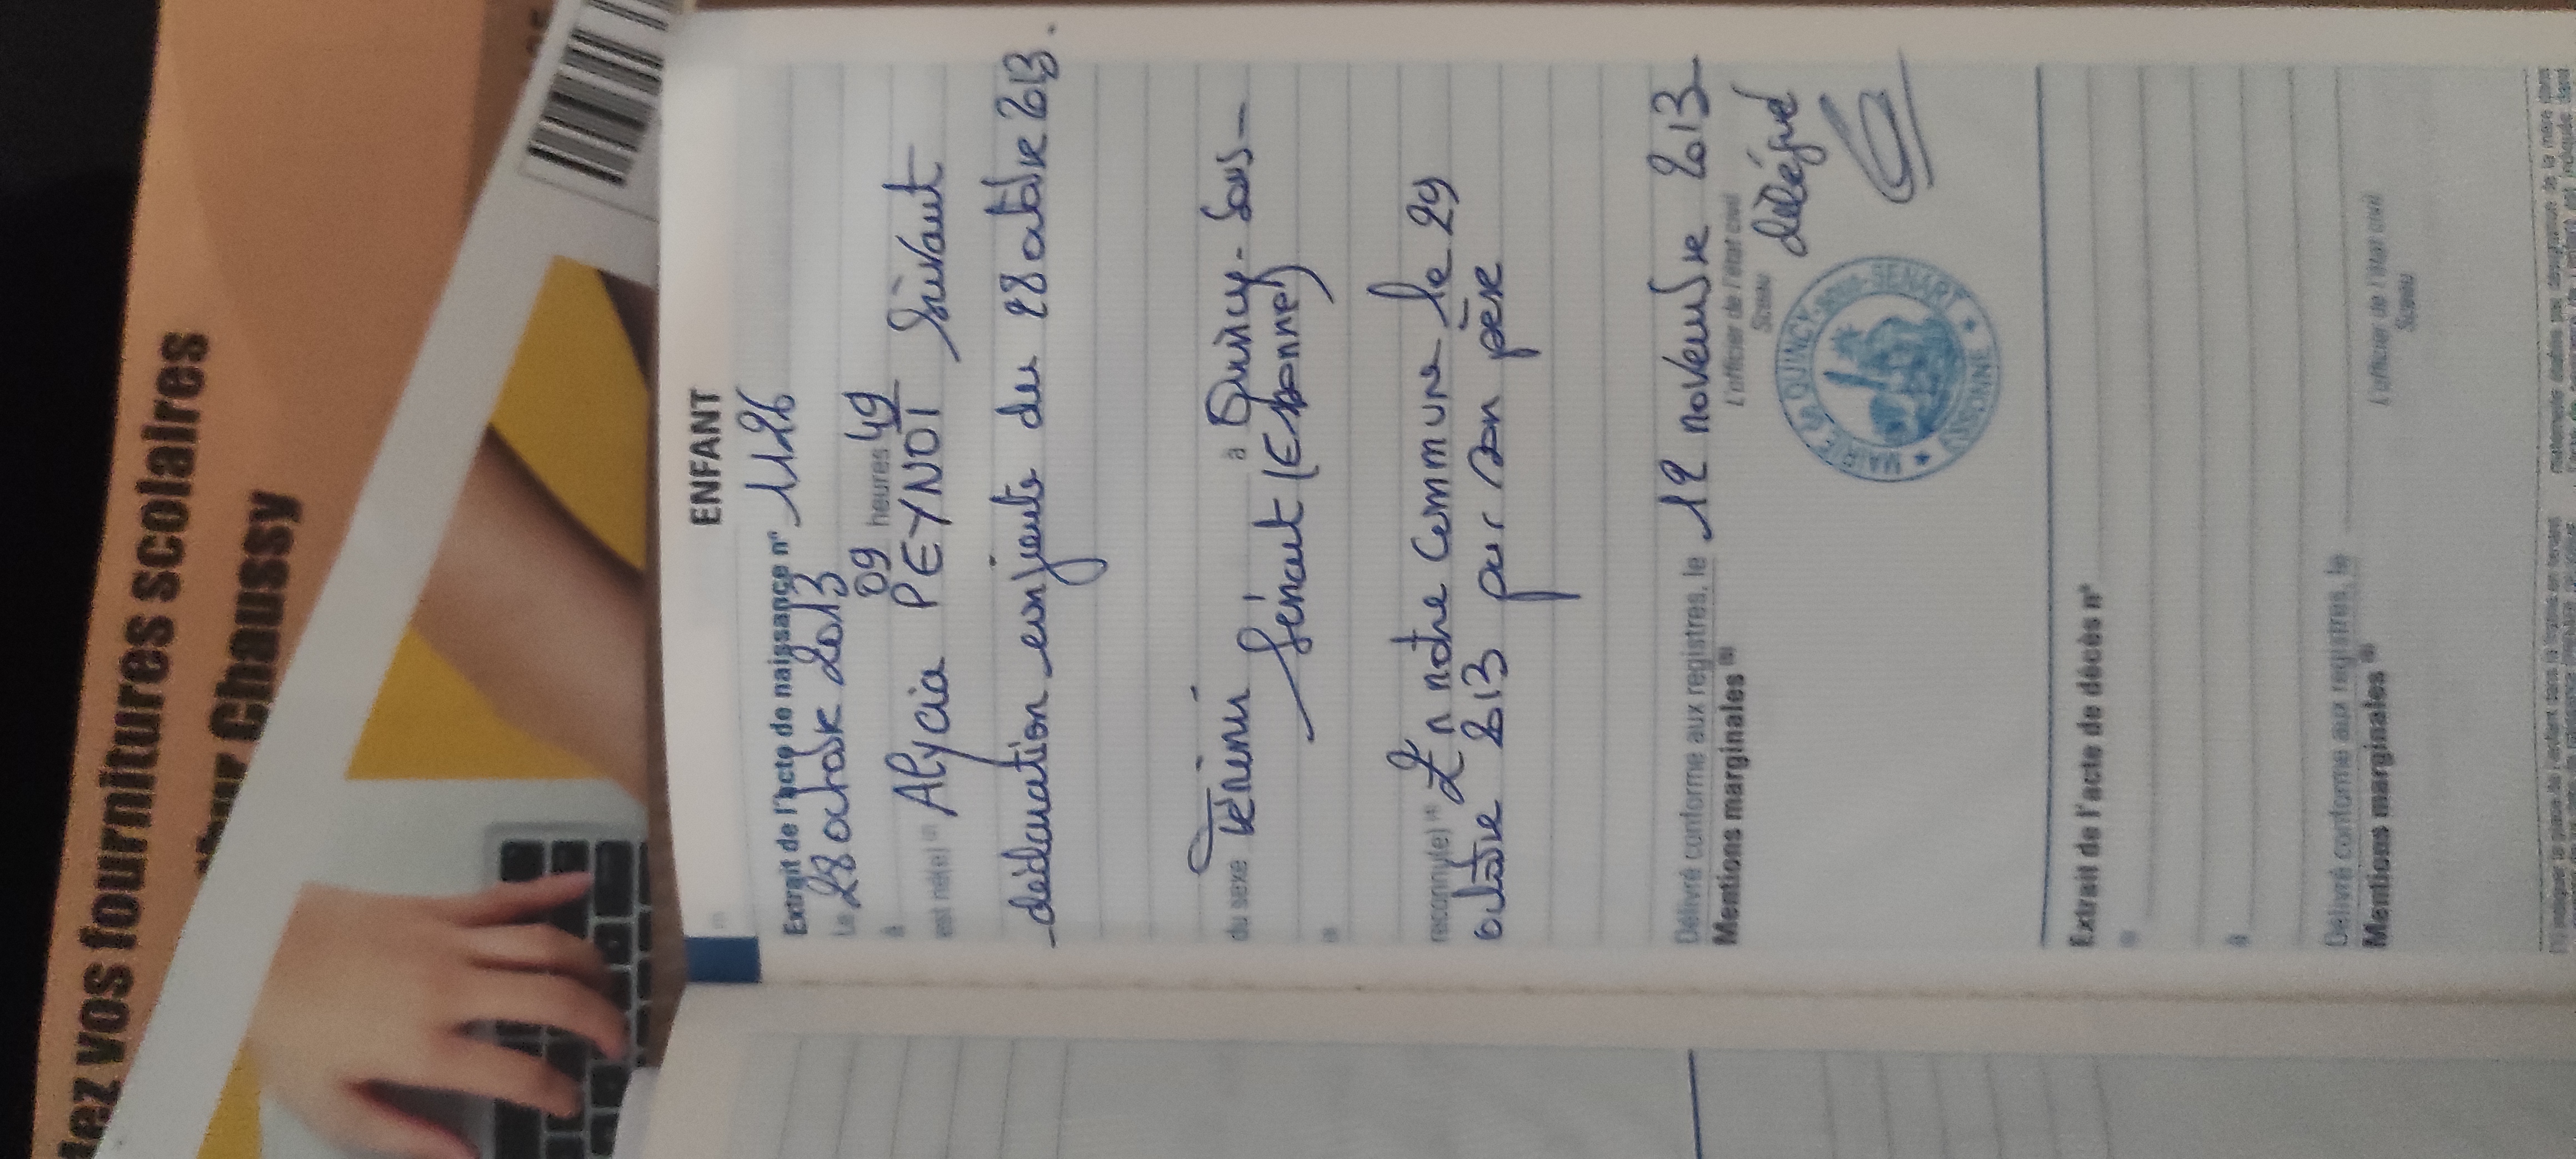 tez vos fournitures scolaires
Chaussy
ENFANT
Extrait de l'acte de naissance n° 1126
Le 28 octobre 2013
à 09 heures 49
est né(e) Alycia PEYNOT Suivant
déclaration conjointe du 28 octobre 2013.
du sexe Féminin à Quincy-Sous-
Sénart (Essonne)
reconnu(e) En notre Commune le 29
octobre 2013 par son père
Délivré conforme aux registres, le 12 novembre 2013
Mentions marginales
L'officier de l'état civil
Sceau
délégué
MAIRIE de QUINCY-SOUS-SENART
ESSONNE
Extrait de l'acte de décès n°
à
Délivré conforme aux registres, le
Mentions marginales
L'officier de l'état civil
Sceau